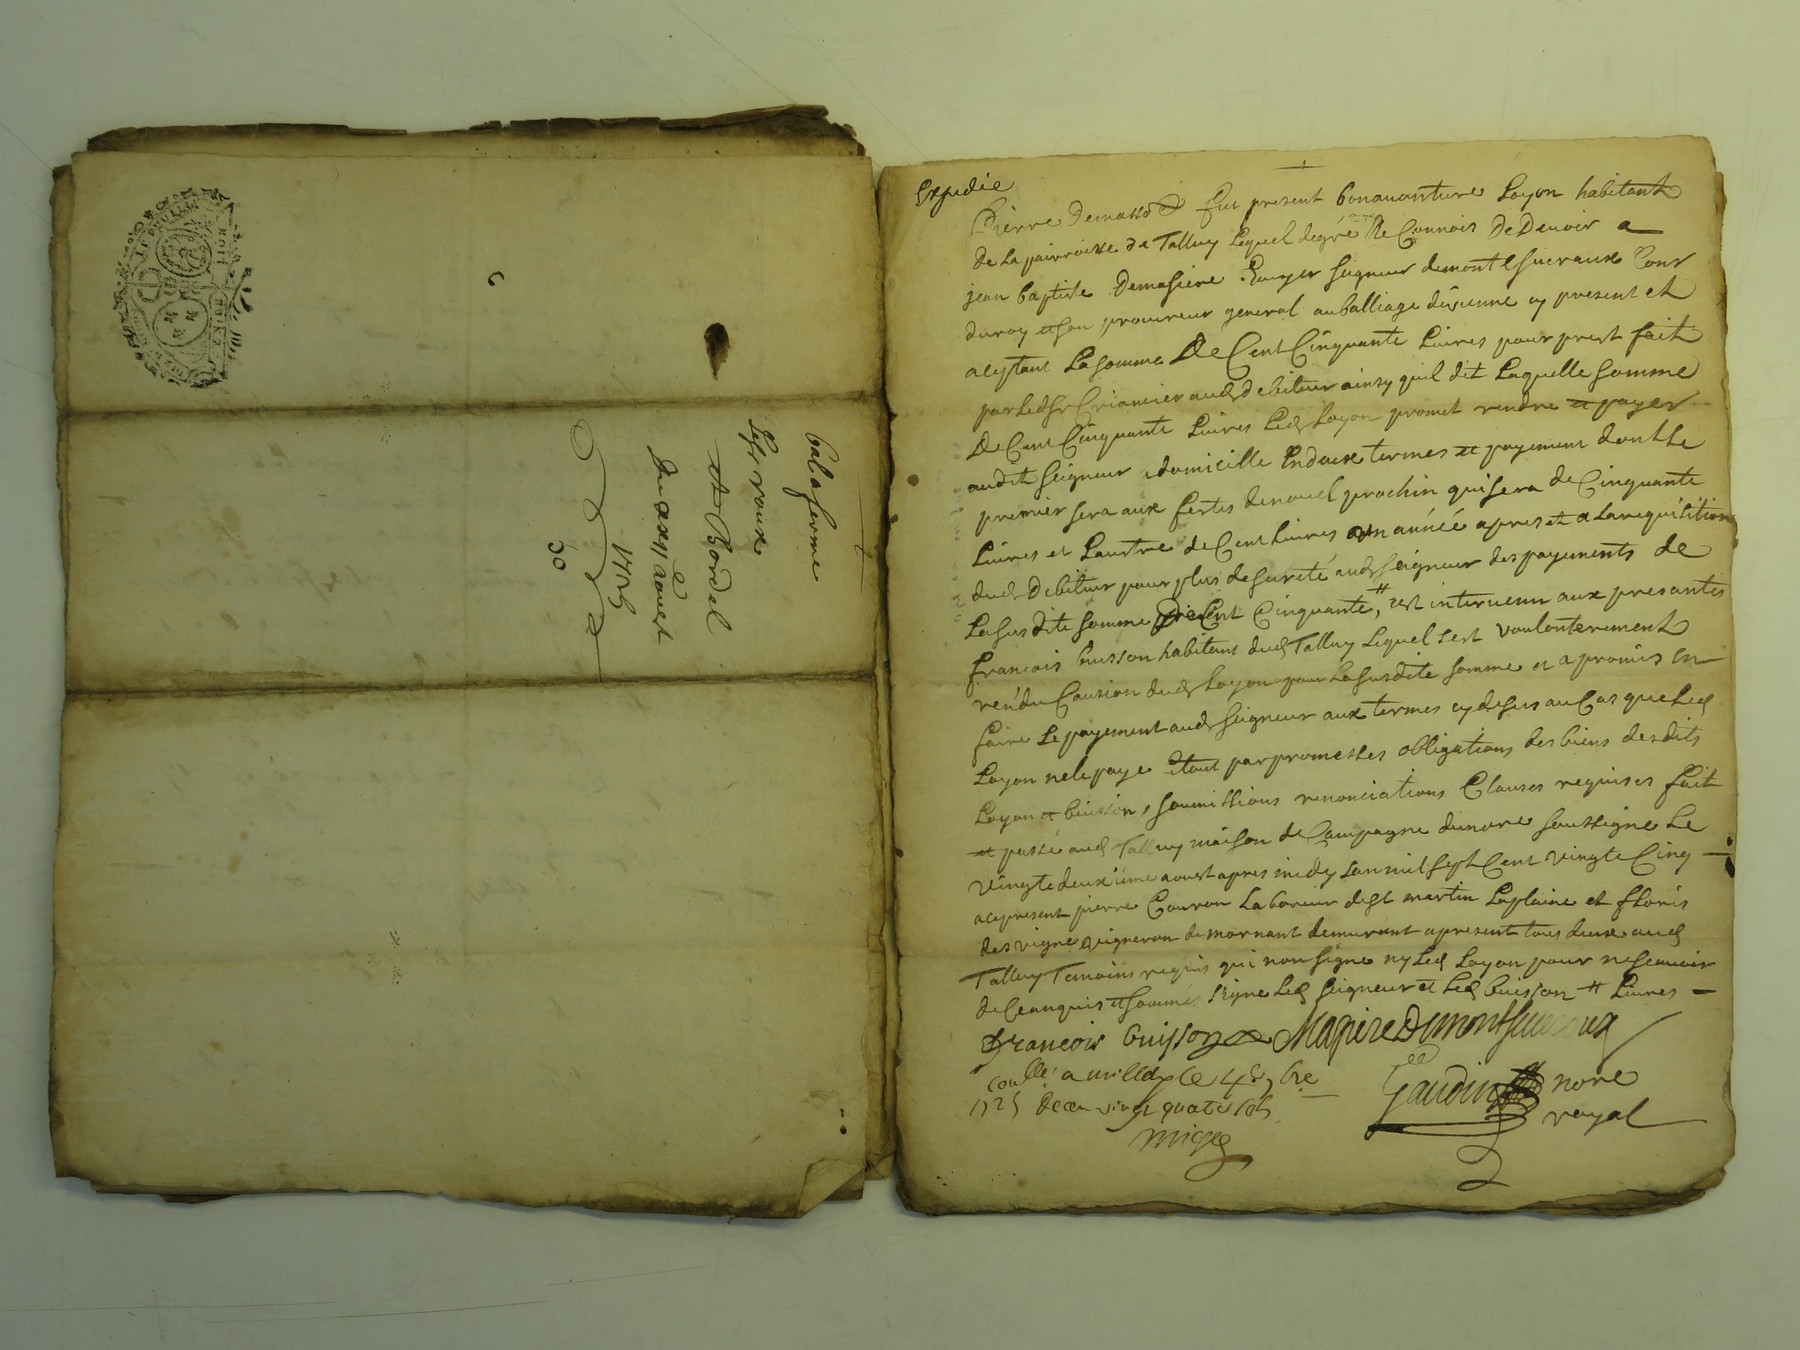 bal a ferme
Sr roux
et Bordel
du xxii aoust
1725
50
Expediė
Pierre Demasso fut present bonavanture Loyon habitant
de la pairroisse de Talluy Lequel de gré Reconnois De Devoir a
jean baptiste Demasiere Ecuyer seigneur demont
du roy et son procureur general au balliage de vienne cy present et
aceptant La somme De Cent Cinquante Livres pour prest fait
par Led Sr Criancier aud debiteur ainsy quil dit Laquelle somme
De Cent Cinquante Livres Led Loyon promet rendre et payer
audit seigneur a domicille En deux termes et payement dont Le
premier sera aux festes denouel prochin qui sera de Cinquante
Livres et Lautre de Cent Livres un année apres et a la requisition
dud Debiteur pour plus de sureté aud seigneur des payements de
La susdite somme De Cent Cinquante, # est intervenu aux presantes
francois buisson habitant dud Talluy Lequel sest voulonterement
rendu Causion dud Loyon pour La susdite somme et a promis en
faire Le payement aud seigneur aux termes cy desus au Cas que Led
Loyon ne le paye et tout par promesses obligations des biens desdits
Loyon et buisson, soumissions renonciations Clauses requises fait
et passé aud Talluy maison de Campagne du nore soussigne Le
vingte deuxieme aoust apres midy Lan mil sept Cent vingte Cinq
acepresent pierre Couron Laboreur de St martin Laplaine et floris
des vigne vigneron de mornant demurant a present tous deux aud
Talluy Temoins requis qui non signe ny Led Loyon pour ne scauoir
de Ce anquis et sommes signe Led seigneur et Led buisson # Livres
francois buisson
Conllé a le 4e 7bre
1725 Recu vingt quatre sols
Gaudin nore
royal